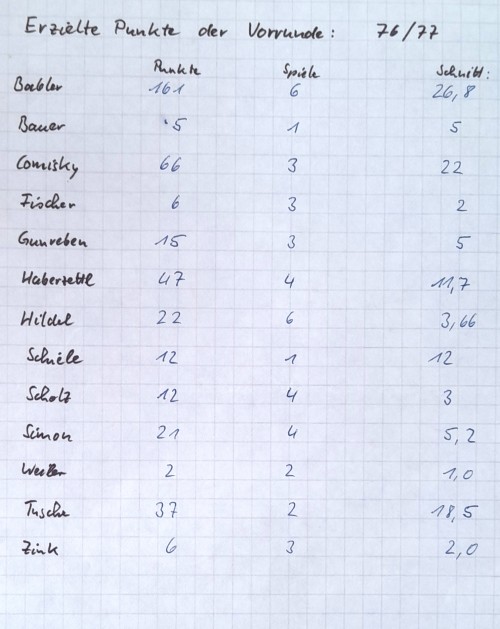 Erzielte Punkte der Vorrunde: 76/77
Punkte Spiele Schnitt:
Babler 161 6 26,8
Bauer 5 1 5
Comisky 66 3 22
Fischer 6 3 2
Gunreben 15 3 5
Haberzettl 47 4 11,7
Hildel 22 6 3,66
Schiele 12 1 12
Scholz 12 4 3
Simon 21 4 5,2
2 2 1,0
Tusche 37 2 18,5
Zink 6 3 2,0